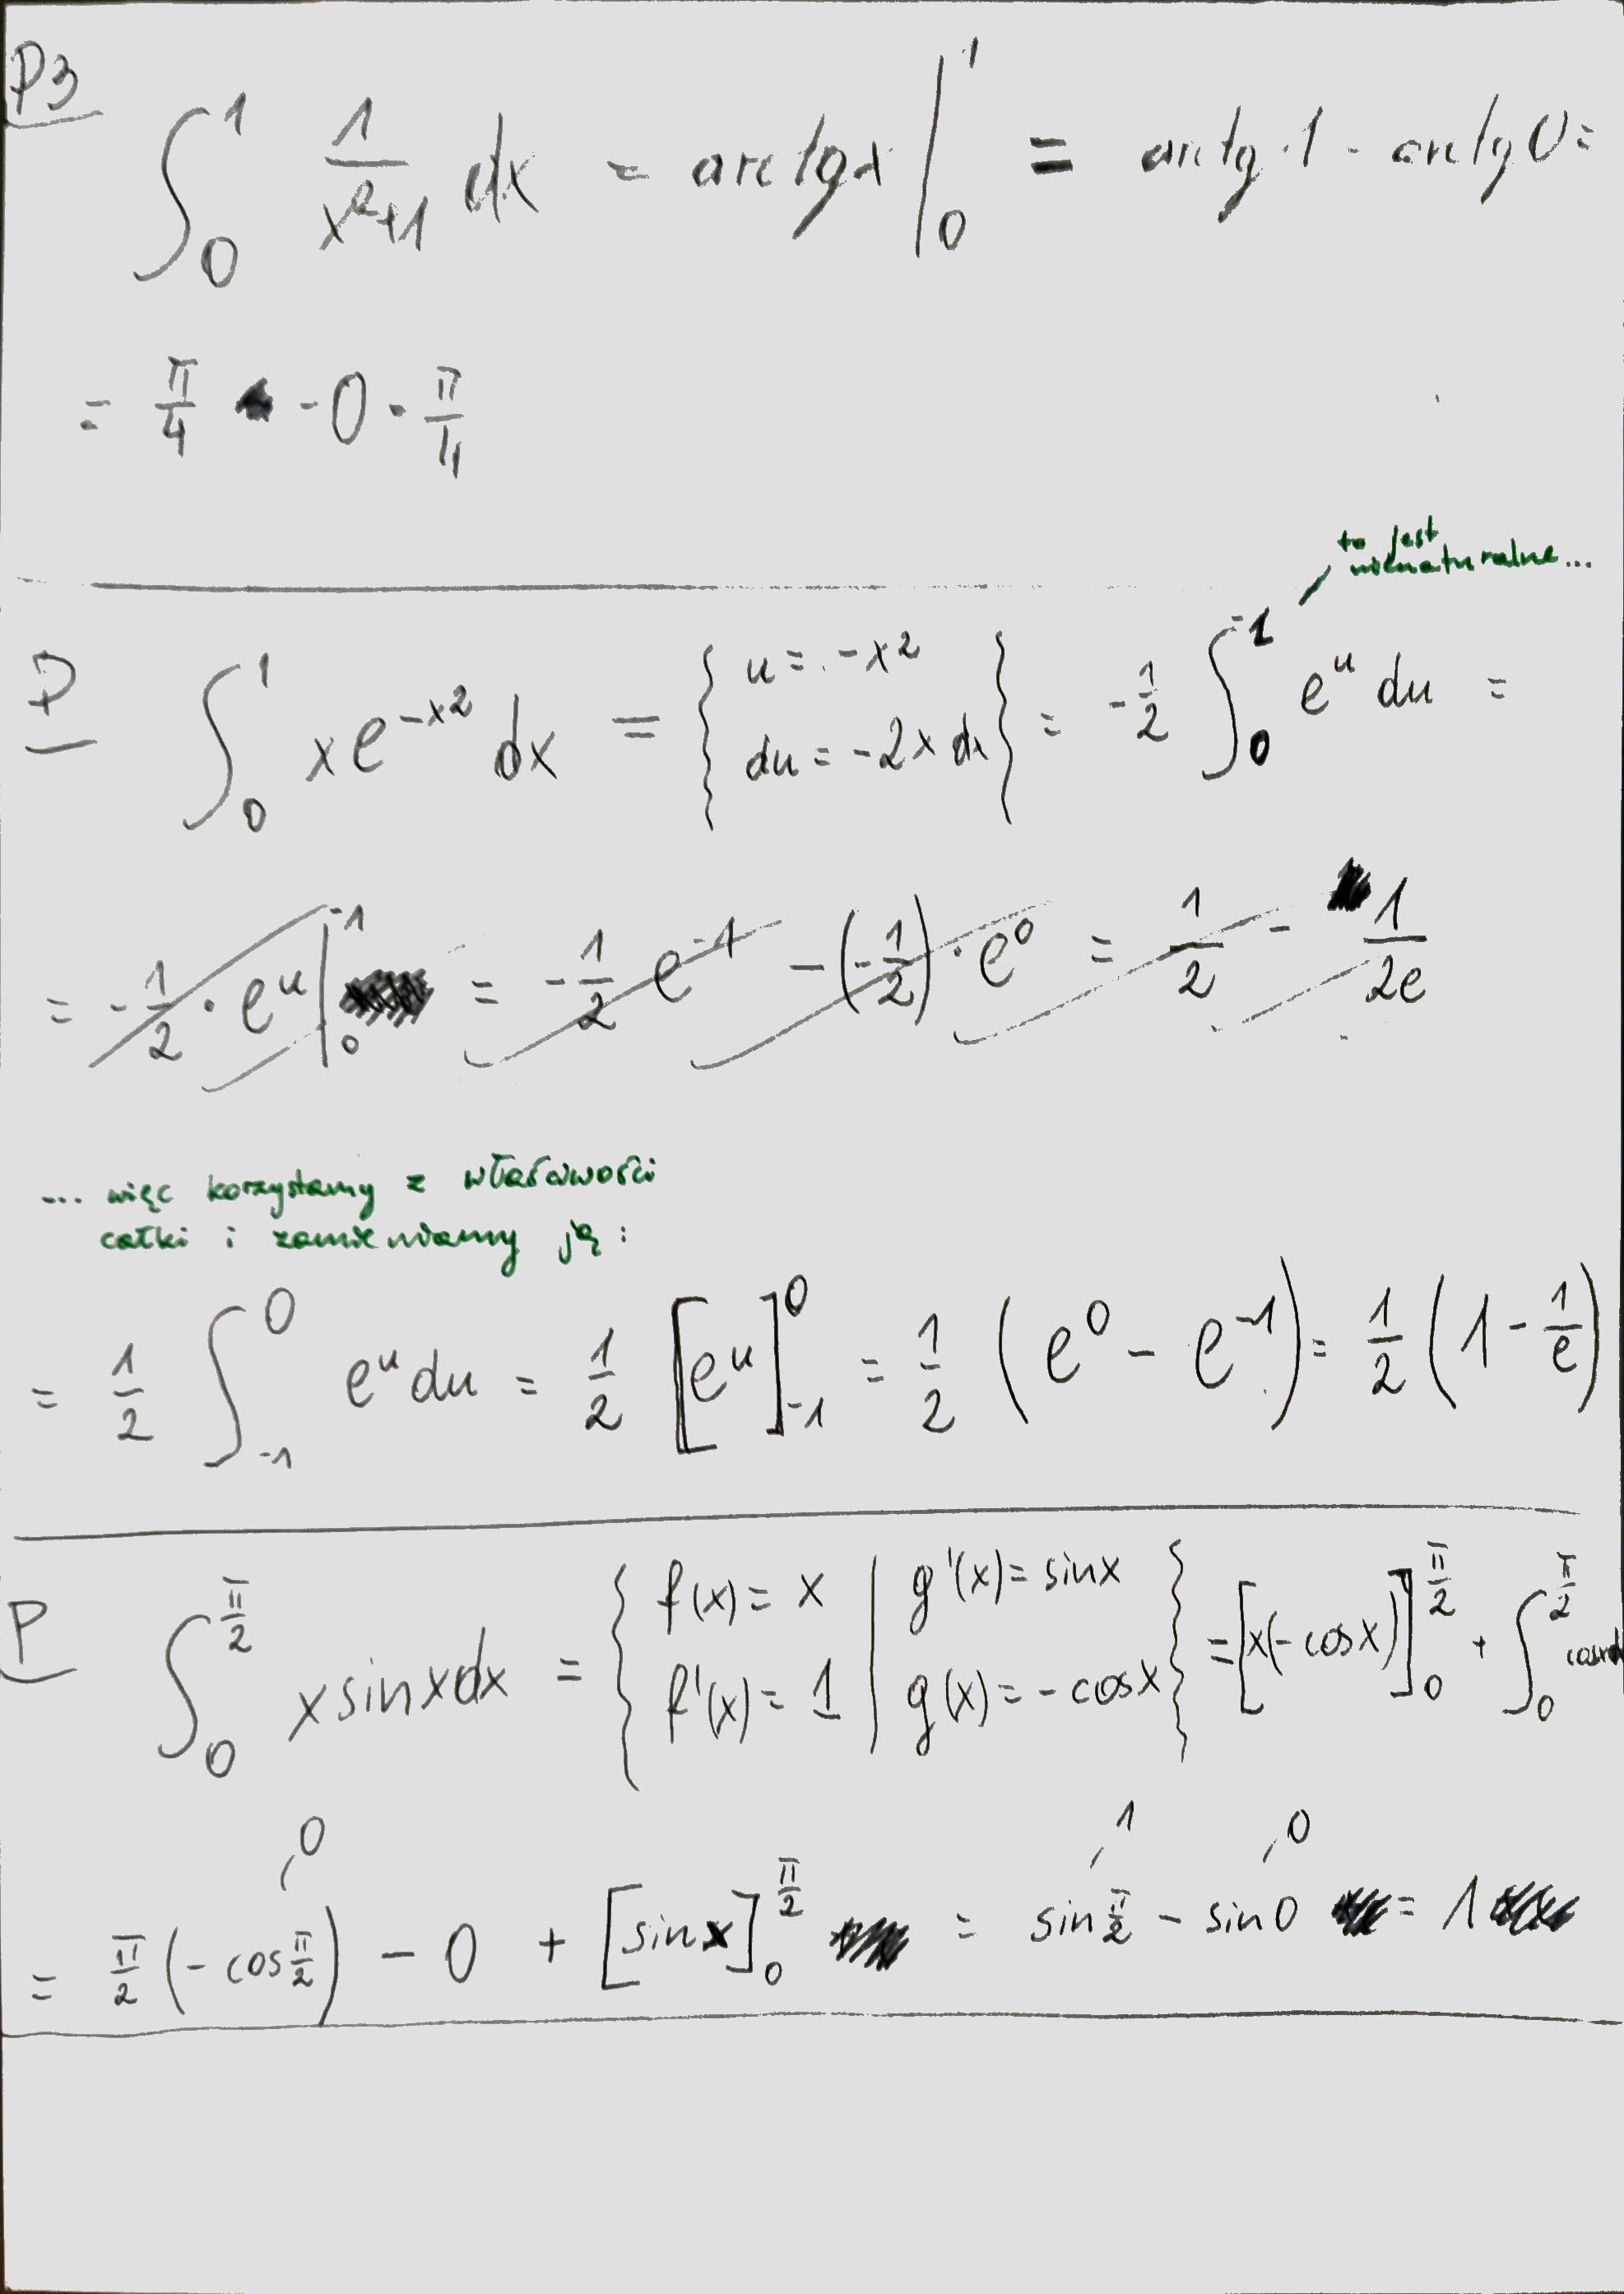 P3
∫₀¹ 1/(x²+1) dx = arc tg x |₀¹ = arctg 1 - arctg 0 =
= π/4 - 0 = π/4
to jest
nienaturalne...
P ∫₀¹ x e^(-x²) dx = { u = -x² ; du = -2x dx } = -1/2 ∫₀⁻¹ e^u du =
= -1/2 · e^u |₀⁻¹ = -1/2 e⁻¹ - (-1/2) · e⁰ = 1/2 - 1/(2e)
... więc korzystamy z właściwości
całki i zamieniamy ją:
= 1/2 ∫₋₁⁰ e^u du = 1/2 [e^u]₋₁⁰ = 1/2 (e⁰ - e⁻¹) = 1/2 (1 - 1/e)
P ∫₀^(π/2) x sinx dx = { f(x) = x | g'(x) = sinx ; f'(x) = 1 | g(x) = -cosx } = [x(-cosx)]₀^(π/2) + ∫₀^(π/2) cosxd
0 1 0
= π/2 (-cos π/2) - 0 + [sinx]₀^(π/2) = sin π/2 - sin0 = 1